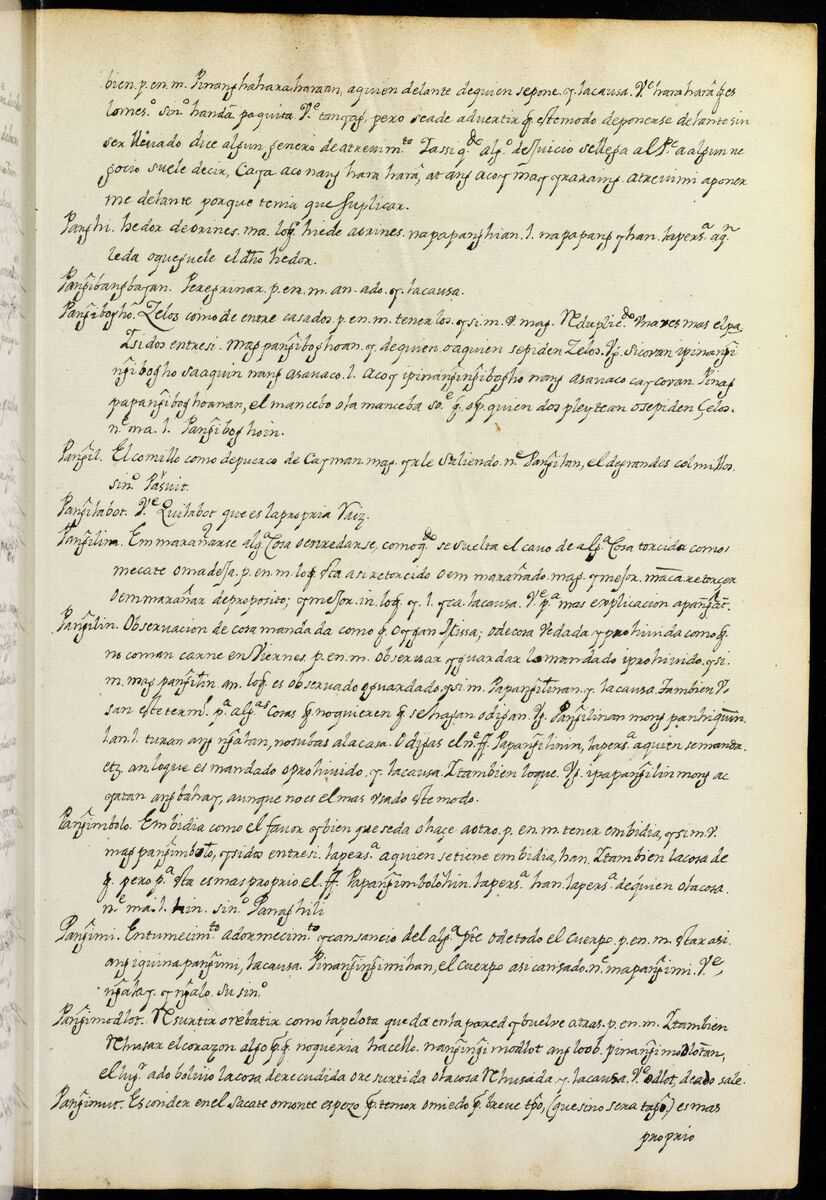 bien. p. en. m. Pinanghaharaharaan, aquien delante de quien se pone. y la causa. Ve harahara q̃ es
lo mes.º sin.º handa. paquita. Ve tangag, pero se a de advertir q̃ este modo de ponerse delante sin
ser llevado dice algun genero de atrevim.to Y assi q.do alg.º de juicio se llega al Pe a algun ne
gocio suele decir, Caya aco nang hara hara, at ang acoy may yraraing. atrevime a poner
me delante porque tenia que suplicar.
Panghi. hedor de orines. ma. lo q̃ hiede a orines. napapanghian. l. napapangyhan. la pers.a aq.n
le da o que guele el dho hedor.
Pangibangbayan. Peregrinar. p. en. m. an. ado. y la causa.
Pangiboghó. Zelos como de entre casados. p. en. m. tenerlos. y si. m. v. mag. Reduplic.do Una vez mas el pa.
Y si dos entre si. Mag pangiboghoan. y. de quien o a quien se piden Zelos. Vg. si coran ipinangi
ngibogho sa aquin nang asavaco. l. acoy ipinanginginbogho nang asavaco cay coran. Pinag
papangiboghoanan, el mancebo o la manceba so.e q̃. o p.r quien dos pleytean o se piden Çelos.
n.e ma. l. Pangiboghoin.
Pangil. El comillo como de puerco de Cayman. mag. yrle saliendo. n.e Pangilan, el de grandes colmillos.
sin.º Pasuit.
Pangilabot. Ve Quilabot que es la propria Raiz.
Pangilina. Emmarañarse alg.a Cosa o enredarse, como q.do se suelta el cavo de alg.a Cosa torcida como
mecate o madeja. p. en. m. lo q̃ sta asi retorcido o em marañado. mag. y mejor. maca retorçer
o emmarañar de proposito; y mejor. in. lo q̃. y. l. yca. la causa. Ve p.a mas explicacion
Pangilin. Observacion de cosa mandada como q̃ Oygan Missa; o de cosa Vedada y prohivida como q̃
no coman carne en Viernes. p. en. m. observar y guardar lo mandado i prohivido. y si.
m. mag pangilin. an. lo q̃ es observado o guardado. y si. m. Papangilinan. y la causa. Tambien V
san este term.º p.a alg.as Cosas q̃ no quieren q̃ se hagan o digan. Vg. Pangilinan mong panhiquin
lan. l. turan ang ngalan, no subas a la casa. O digas el n.e ff. Papangilinin, la pers.a a quien se manda.
etz. an. lo que es mandado o prohivido. y la causa. Y tambien lo que. Vg. ipapangilin mong ac
yatan ang bahay, aunque no es el mas usado ste modo.
Pangimbolo. Embidia como el favor y bien que se da o haçe a otro. p. en. m. tener embidia, y si m. v.
mag pangimbolo, y si dos entre si. la pers.a a quien se tiene embidia, han. Y tambien la cosa de
q̃. pero p.a sta es mas proprio el. ff. Papangimbolohin. la pers.a han. la pers.a de quien o la cosa.
n.e ma. l. hin. sin.º Panaghili
Pangimi. Entumecim.to adormecim.to y cansancio del alg.a pte o de todo el Cuerpo. p. en. m. star asi.
ang iquinapangimi, la causa. Pinangingimihan, el cuerpo asi cansado. n.e mapangimi. Ve,
ngalay. y ngalo. su sin.º
Pangimodlot. Resurtir o rebatir como la pelota que da en la pared y buelve atras. p. en. m. Y tambien
Rehusar el corazon algo p.r q̃ no queria hacello. nangingimodlot ang loob. pinangimodlotan,
el lug.r ado bolvio la cosa de recudida o resurtida o la cosa Rehusada y la causa. Ve odlot, deado sale.
Pangimut. Esconder en el sacate o monte espezo p.r temor o miedo p.r breve tpo, (que si no sera tago) es mas
proprio